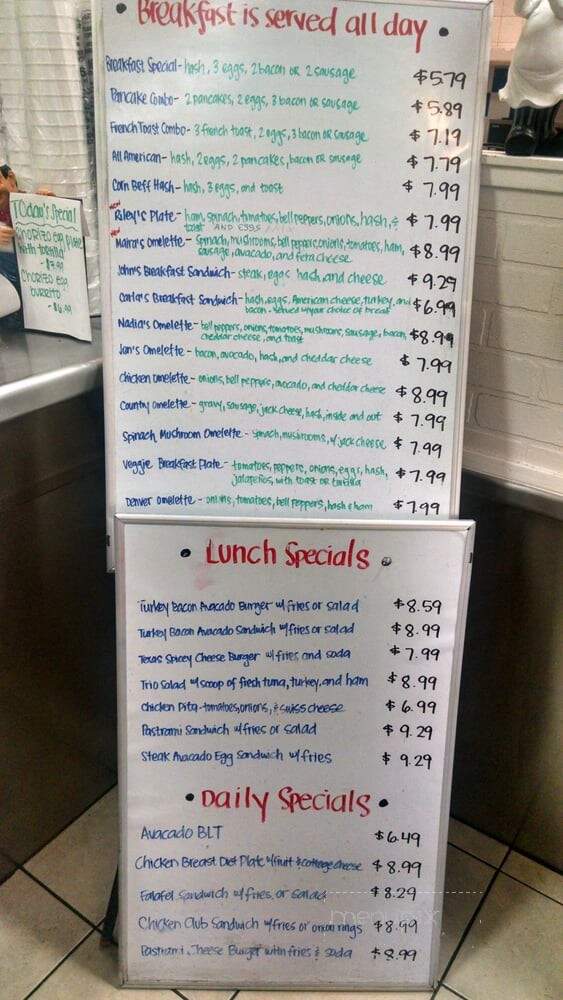 • Breakfast is served all day •
Breakfast Special - hash, 3 eggs, 2 bacon OR 2 sausage $5.79
Pancake Combo - 2 pancakes, 2 eggs, 3 bacon OR sausage $5.89
French Toast Combo - 3 french toast, 2 eggs, 3 bacon OR sausage $7.19
All American - hash, 2 eggs, 2 pancakes, bacon OR sausage $7.79
Corn Beef Hash - hash, 3 eggs, and toast $7.99
Riley's Plate - ham, spinach, tomatoes, bell peppers, onions, hash, & $7.99
toast AND EGGS
Maira's Omelette - spinach, mushrooms, bell peppers, onions, tomatoes, ham, $8.99
sausage, avocado, and feta cheese
John's Breakfast Sandwich - steak, eggs hash, and cheese $9.29
Carla's Breakfast Sandwich - hash, eggs, American cheese, turkey, and $6.99
bacon - served w/ your choice of bread
Nadia's Omelette - bell peppers, onions, tomatoes, mushrooms, sausage, bacon, $8.99
cheddar cheese, and toast
Jon's Omelette - bacon, avocado, hash, and cheddar cheese $7.99
Chicken Omelette - onions, bell peppers, avocado, and cheddar cheese $8.99
Country Omelette - gravy, sausage, jack cheese, hash, inside and out $7.99
Spinach, Mushroom Omelette - spinach, mushrooms, w/ jack cheese $7.99
Veggie Breakfast Plate - tomatoes, peppers, onions, eggs, hash, $7.99
jalapeños, with toast or tortilla
Denver Omelette - onions, tomatoes, bell peppers, hash & ham $7.99
Today's Special
Chorizo egg plate
with tortilla
- $7.99
Chorizo egg
burrito
- $6.99
• Lunch Specials •
Turkey Bacon Avacado Burger w/ fries or salad $8.59
Turkey Bacon Avacado Sandwich w/ fries or salad $8.99
Texas Spicey Cheese Burger w/ fries and soda $7.99
Trio Salad w/ scoop of fresh tuna, turkey, and ham $8.99
Chicken Pita - tomatoes, onions, & swiss cheese $6.99
Pastrami Sandwich w/ fries or salad $9.29
Steak Avacado Egg Sandwich w/ fries $9.29
• Daily Specials •
Avacado BLT $6.49
Chicken Breast Diet Plate w/ fruit & cottage cheese $8.99
Falafel Sandwich w/ fries or salad $8.29
Chicken Club Sandwich w/ fries or onion rings $8.99
Pastrami Cheese Burger with fries & soda $8.99